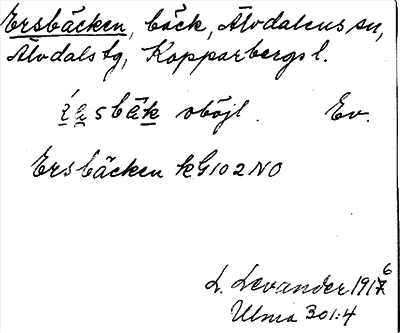 Ersbäcken, bäck, Älvdalens sn,
Älvdals tg, Kopparbergs l.
sbäk oböjl. Ev.
Ersbäcken kG102NO
L. Levander 1916
Ulma 301:4